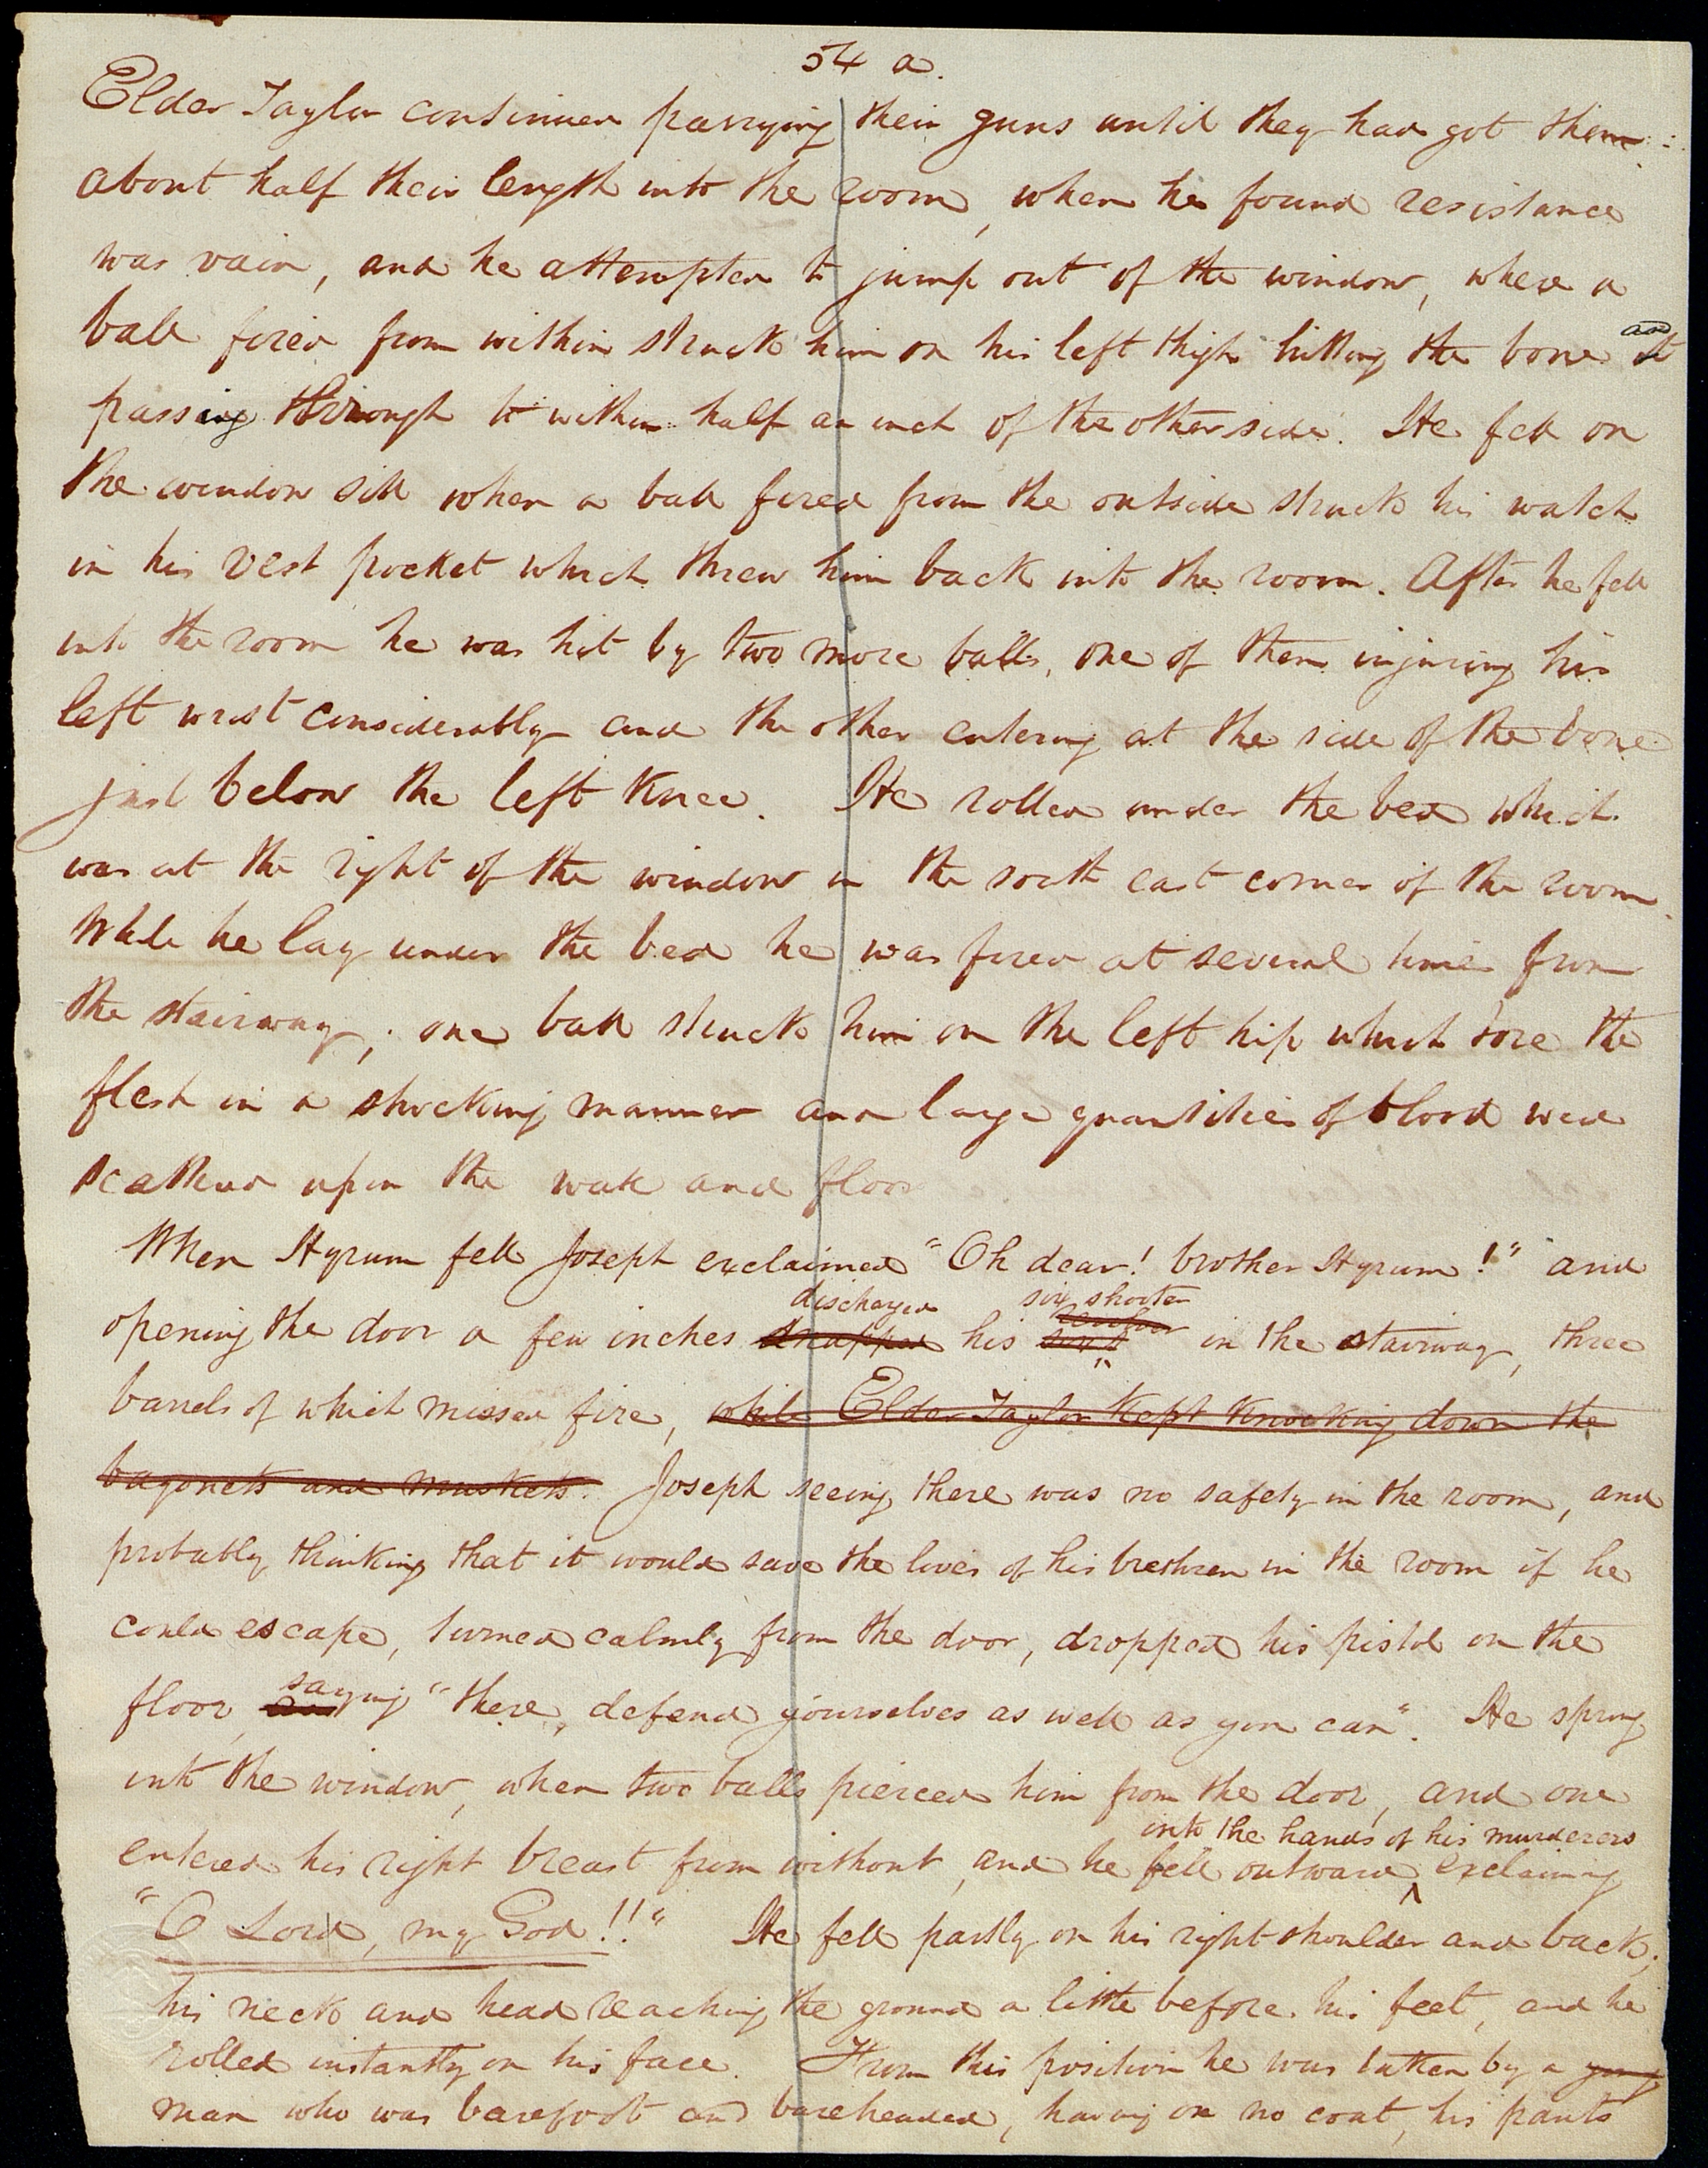 54 a.
Elder Taylor continued parrying their guns until they had got them
about half their length into the room, when he found resistance
was vain, and he attempted to jump out of the window, where a
ball fired from within struck him on his left thigh hitting the bone and
passing through to within half an inch of the other side. He fell on
the window sill when a ball fired from the outside struck his watch
in his vest pocket which threw him back into the room. After he fell
into the room he was hit by two more balls, one of them injuring his
left wrist considerably and the other entering at the side of the bone
just below the left knee. He rolled under the bed which
was at the right of the window in the south east corner of the room.
While he lay under the bed he was fired at several times from
the stairway; one ball struck him on the left hip which tore the
flesh in a shocking manner and large quantities of blood were
scattered upon the wall and floor
When Hyrum fell Joseph exclaimed "Oh dear! brother Hyrum!" and
discharged six shooter
opening the door a few inches snapped his six revolver in the stairway, three
barrels of which missed fire, while Elder Taylor kept knocking down the
bayonets and muskets. Joseph seeing there was no safety in the room, and
probably thinking that it would save the lives of his brethren in the room if he
could escape, turned calmly from the door, dropped his pistol on the
floor, saying "there, defend yourselves as well as you can". He sprung
into the window, when two balls pierced him from the door, and one
into the hands of his murderers
entered his right breast from without, and he fell outward ^ exclaiming
"O Lord, my God!!" He fell partly on his right shoulder and back;
his neck and head reaching the ground a little before his feet, and he
rolled instantly on his face. From this position he was taken by a young
man who was barefoot and bareheaded, having on no coat, his pants